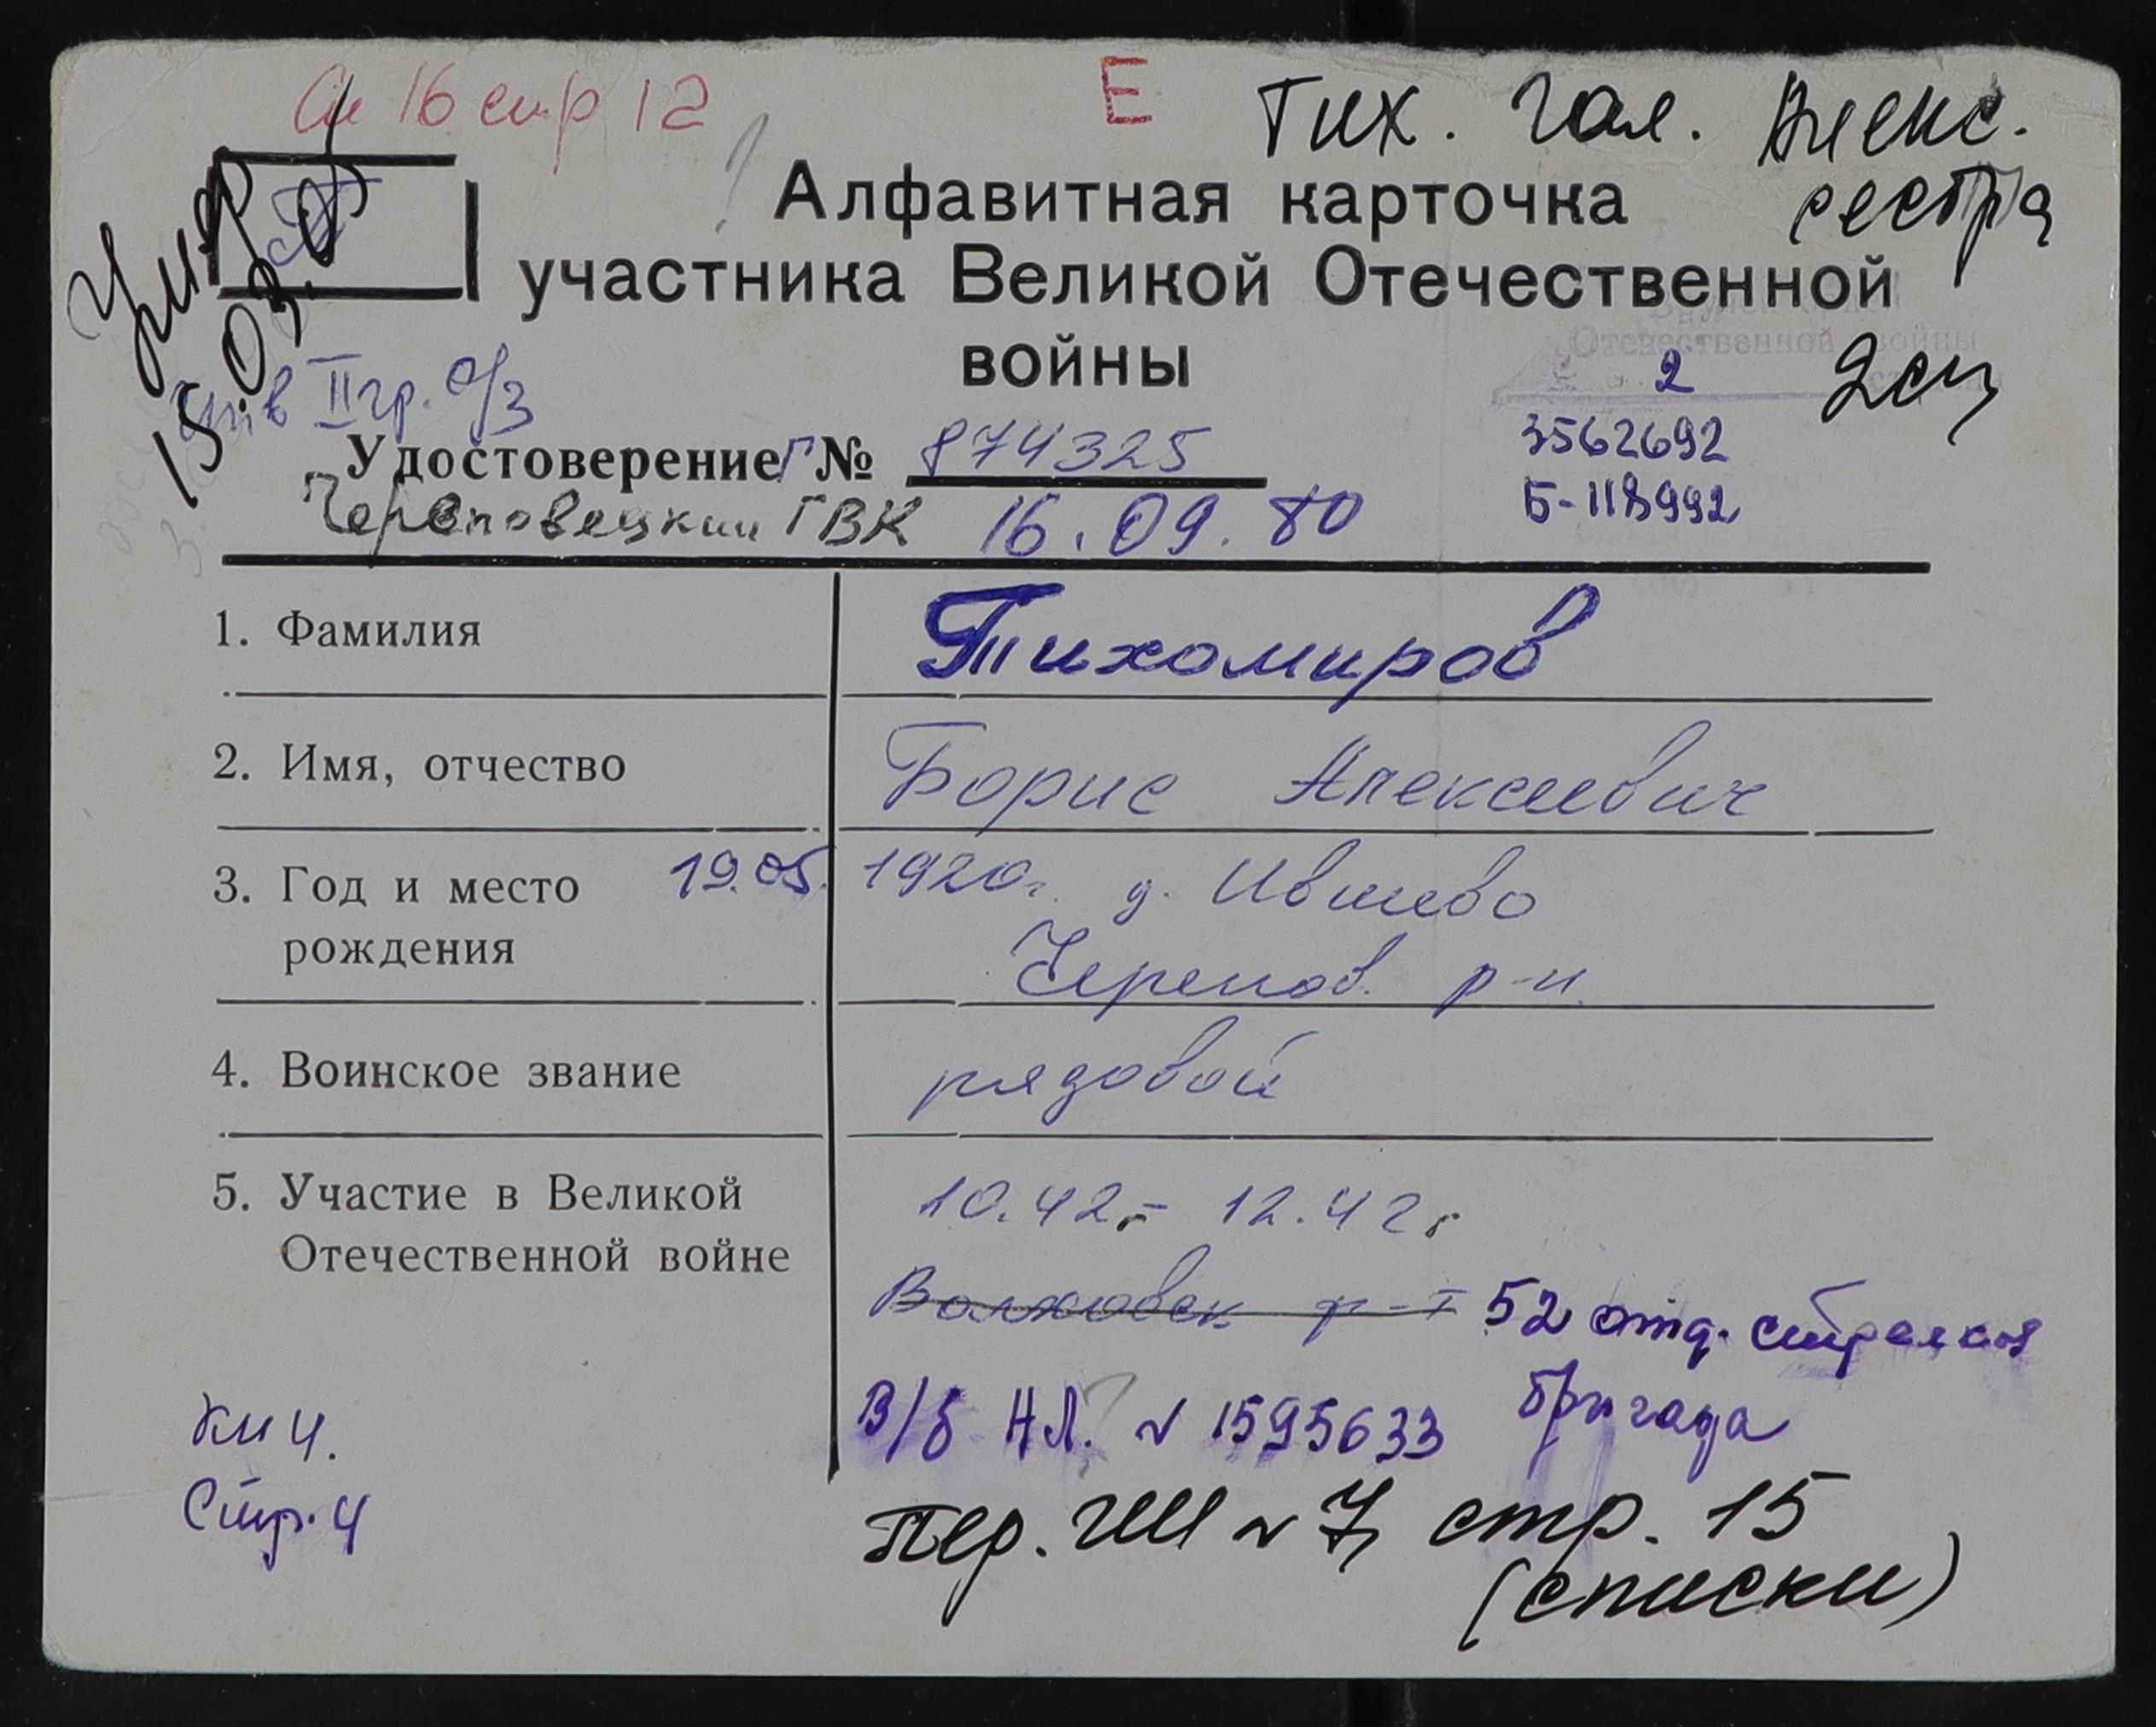 Сп 16 стр 12
Е
Тих. Гал. Алекс.
сестра
Умер
15.03.01
Алфавитная карточка
участника Великой Отечественной
войны
Отечественной войны
2
2 сп
инв II гр. о/з
3562692
Удостоверение Г № 874325
Б-118992
Череповецкий ГВК 16.09.80
1. Фамилия Тихомиров
2. Имя, отчество Борис Алексеевич
3. Год и место 19.05. 1920г. д. Ившево
рождения Черепов. р-н.
4. Воинское звание рядовой
5. Участие в Великой 10.42г - 12.42г
Отечественной войне
Волховск. ф-т 52 отд. стрелков
бригада
В/б НЛ. № 1595633
Кн 4.
Стр. 4
Пер. № 7, стр. 15
(списки)